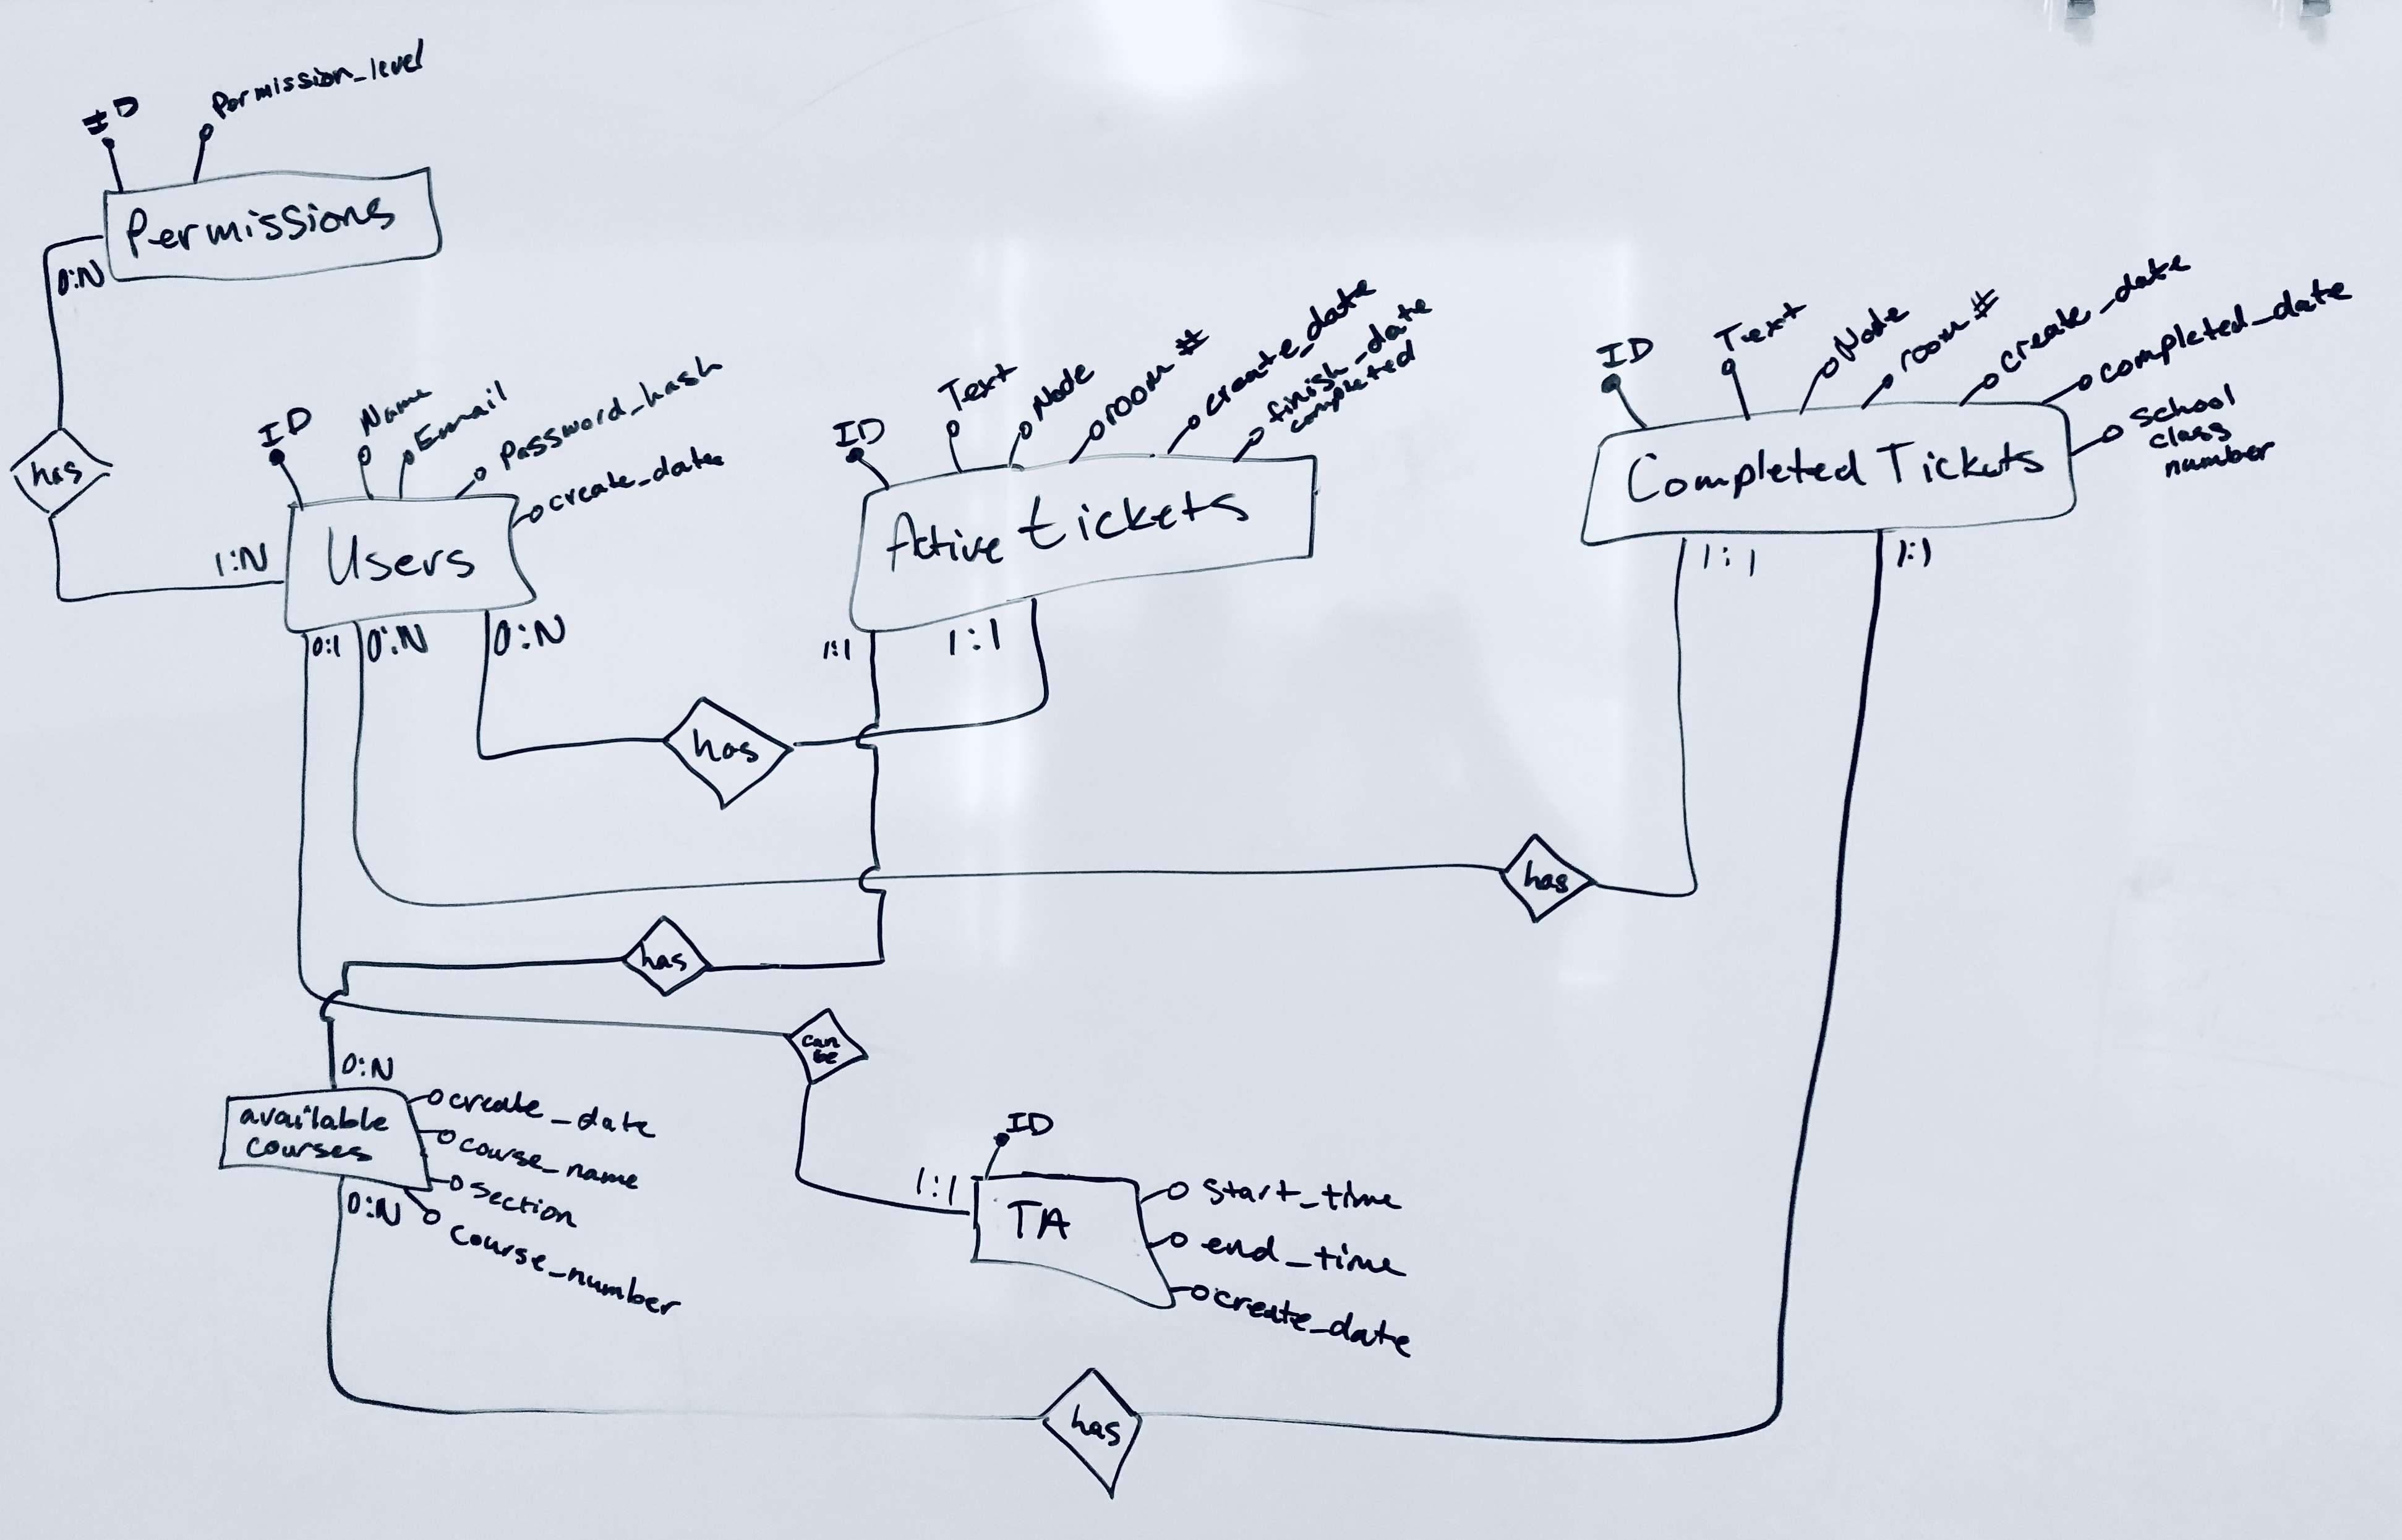 ID
Permission_level
Permissions
0:N
has
1:N
ID
Name
Email
Password_hash
create_date
Users
0:1
0:N
0:N
ID
Text
Node
room #
create_date
finish_date
completed
Active tickets
1:1
1:1
has
ID
Text
Node
room #
create_date
completed_date
School
class
number
Completed Tickets
1:1
1:1
has
has
can
be
0:N
available
courses
create_date
course_name
section
course_number
0:N
ID
1:1
TA
start_time
end_time
create_date
has